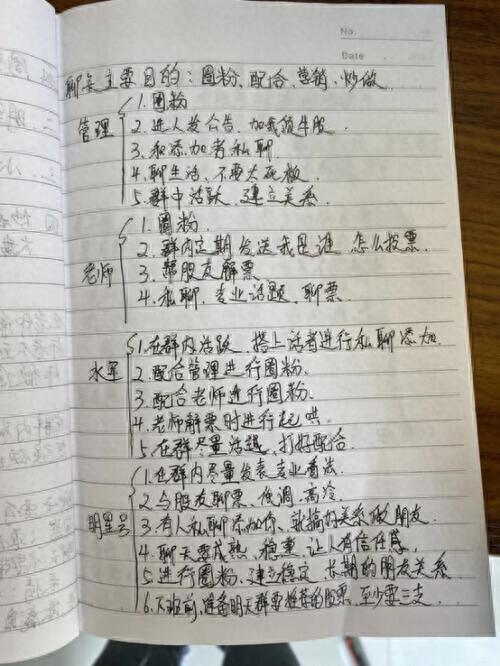 No.
Date
聊天主要目的：圈粉、配合、营销、炒做
管理
1. 圈粉
2. 进人发公告、加我领牛股.
3. 和添加者私聊.
4. 聊生活、不要太死板
5. 群中活跃、建立关系.
老师
1. 圈粉.
2. 群内定期发送我是谁 怎么投票.
3. 帮股友解票
4. 私聊、专业话题、聊票.
水军
1. 在群内活跃、搭上话者进行私聊添加.
2. 配合管理进行圈粉.
3. 配合老师进行圈粉.
4. 老师解票时进行起哄.
5. 在群尽量活跃、打好配合.
明星号
1. 在群内尽量发表专业看法.
2. 与股友聊票、低调、高冷.
3. 有人私聊添加你、就搞好关系做朋友.
4. 聊天要成熟、稳重、让人有信任感.
5. 进行圈粉、建立稳定、长期的朋友关系
6. 下班前、准备明天群要推荐的股票、至少要三支.